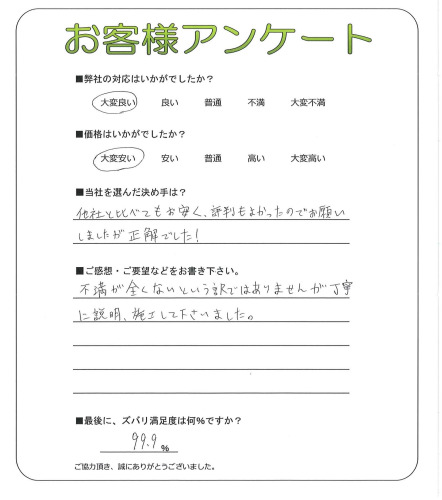 お客様アンケート
■弊社の対応はいかがでしたか？
大変良い 良い 普通 不満 大変不満
■価格はいかがでしたか？
大変安い 安い 普通 高い 大変高い
■当社を選んだ決め手は？
他社と比べてもお安く、評判もよかったのでお願い
しましたが正解でした！
■ご感想・ご要望などをお書き下さい。
不満が全くないという訳ではありませんが丁寧
に説明、施工して下さいました。
■最後に、ズバリ満足度は何%ですか？
99.9 %
ご協力頂き、誠にありがとうございました。